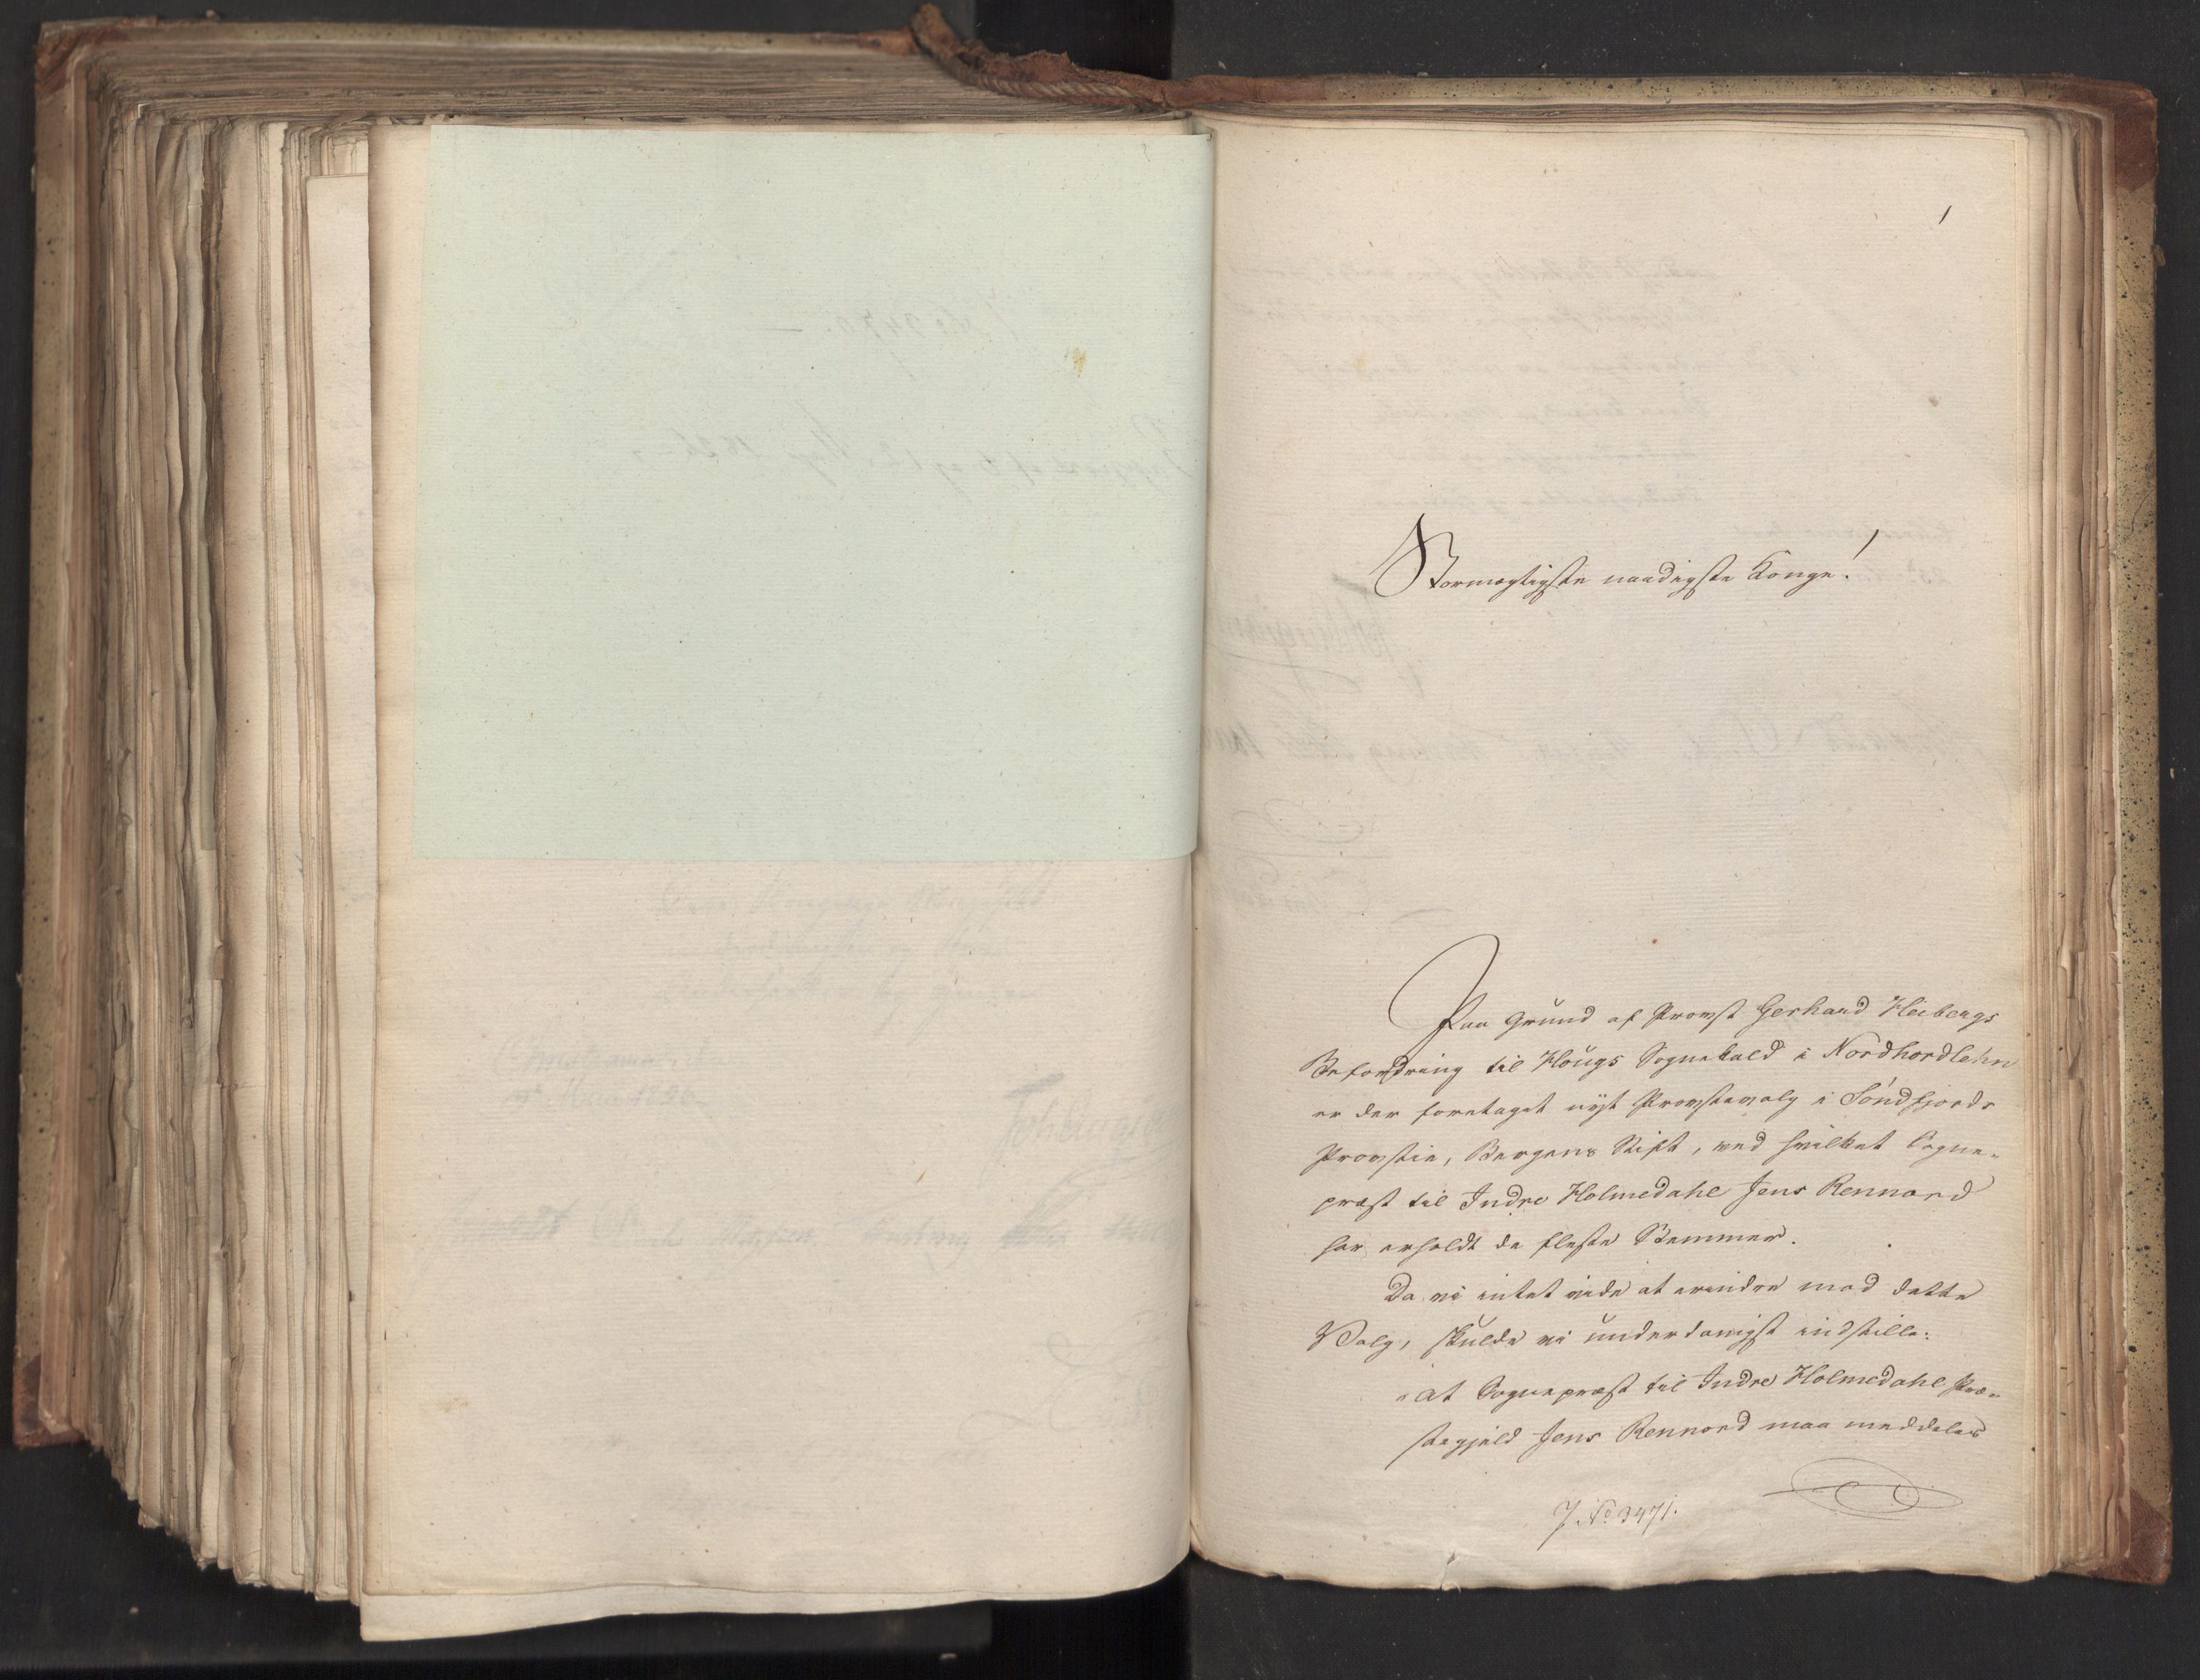 Stormægtigste naadigste Konge!
Paa Grund af Provst Gerhard Heibergs
Befordring til Hougs Sognekald i Nordhordlehn
er der foretaget nyt Provstevalg i Söndfjords
Provstie, Bergens Stift, ved hvilket Sogne-
præst til Indre Holmedahl Jens Rennord
har erholdt de fleste Stemmer.
Da vi intet vide at erindre mod dette
Valg, skulde vi underdanigst indstille:
"at Sognepræst til Indre Holmedahl Præ-
stegjeld Jens Rennord maa meddeles
J. No 3471.